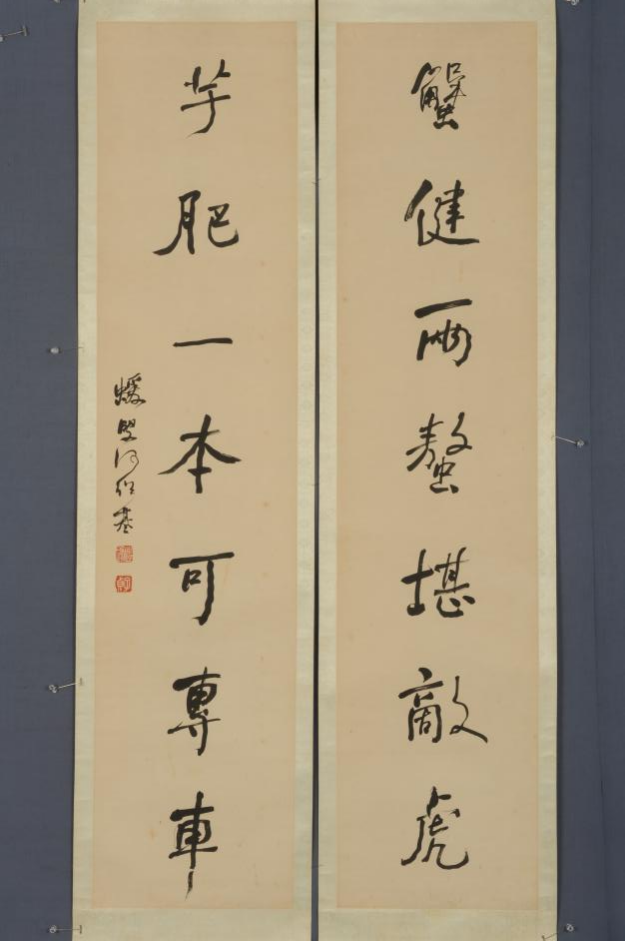 蟹健兩螯堪敵虎
芋肥一本可專車
蝯叟何紹基